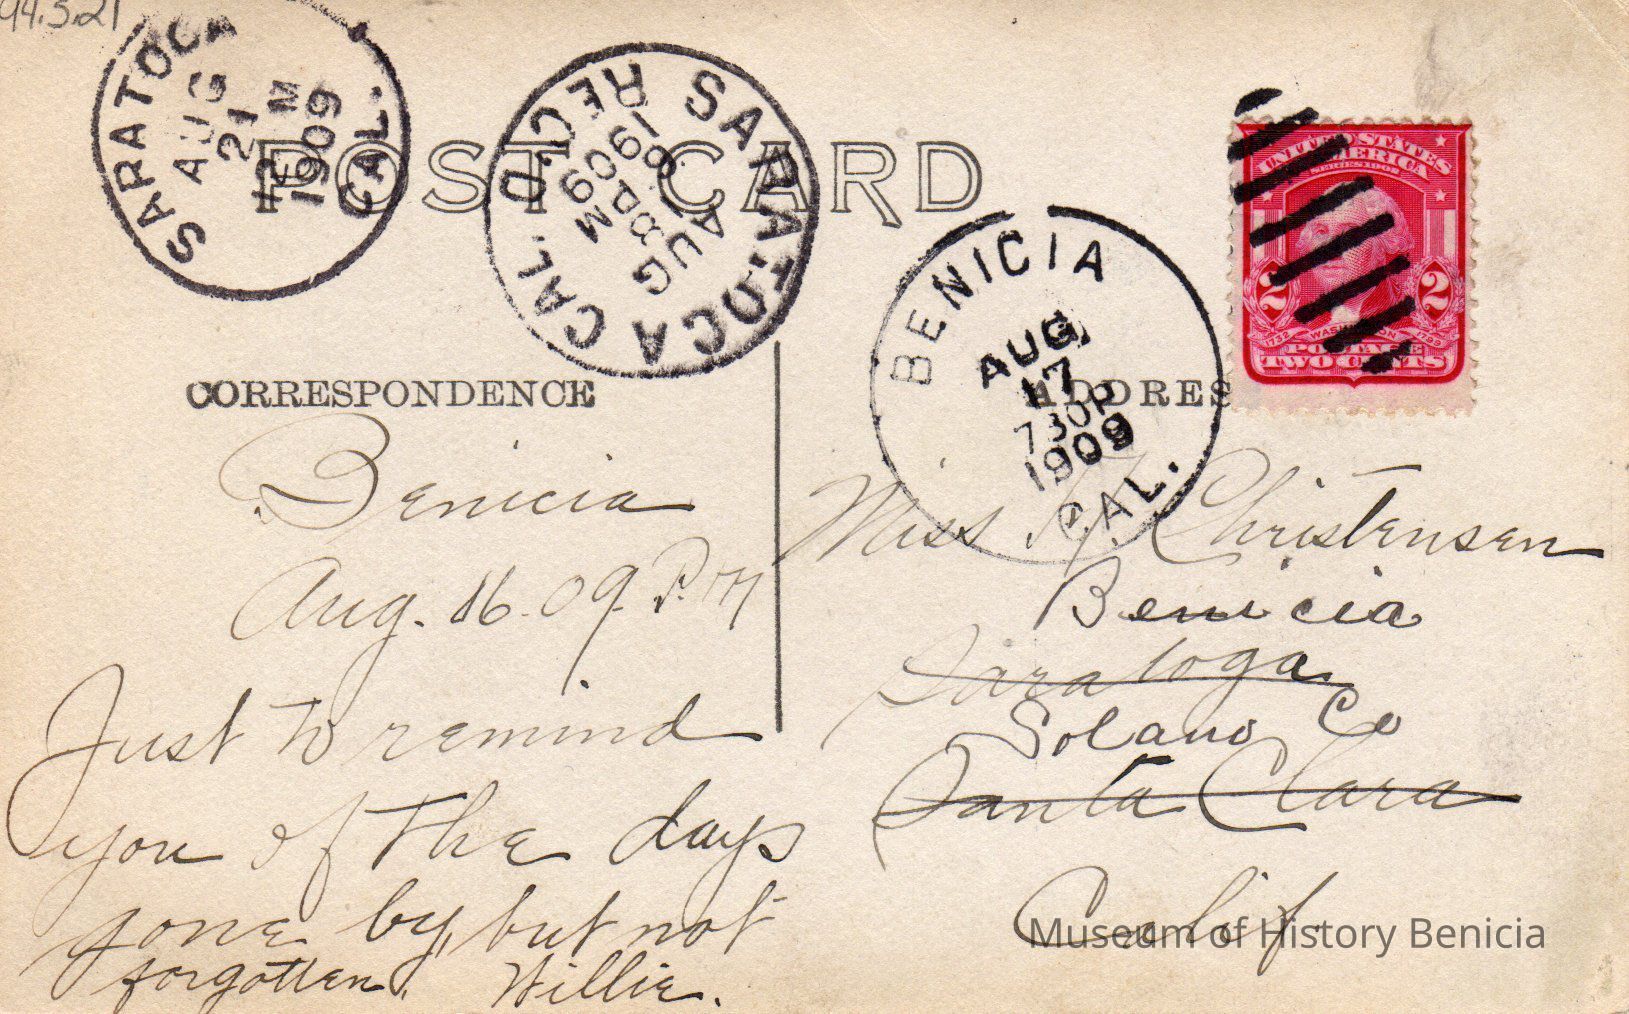 94.5.21
SARATOGA
AUG
21
12 M
1909
CAL.
SARATOGA CAL.
REC'D.
AUG
18
1909
POST CARD
BENICIA
AUG
17
730P
1909
CAL.
UNITED STATES
AMERICA
SERIES 1902
2 2
1732 WASHINGTON 1799
POSTAGE
TWO CENTS
CORRESPONDENCE
ADDRES
Benicia
Aug. 16. 09. P.M
Just to remind
you of the days
gone by, but not
forgotten. Willie.
Miss Christensen
Benicia
Saratoga
Solano Co
Santa Clara
Calif
Museum of History Benicia